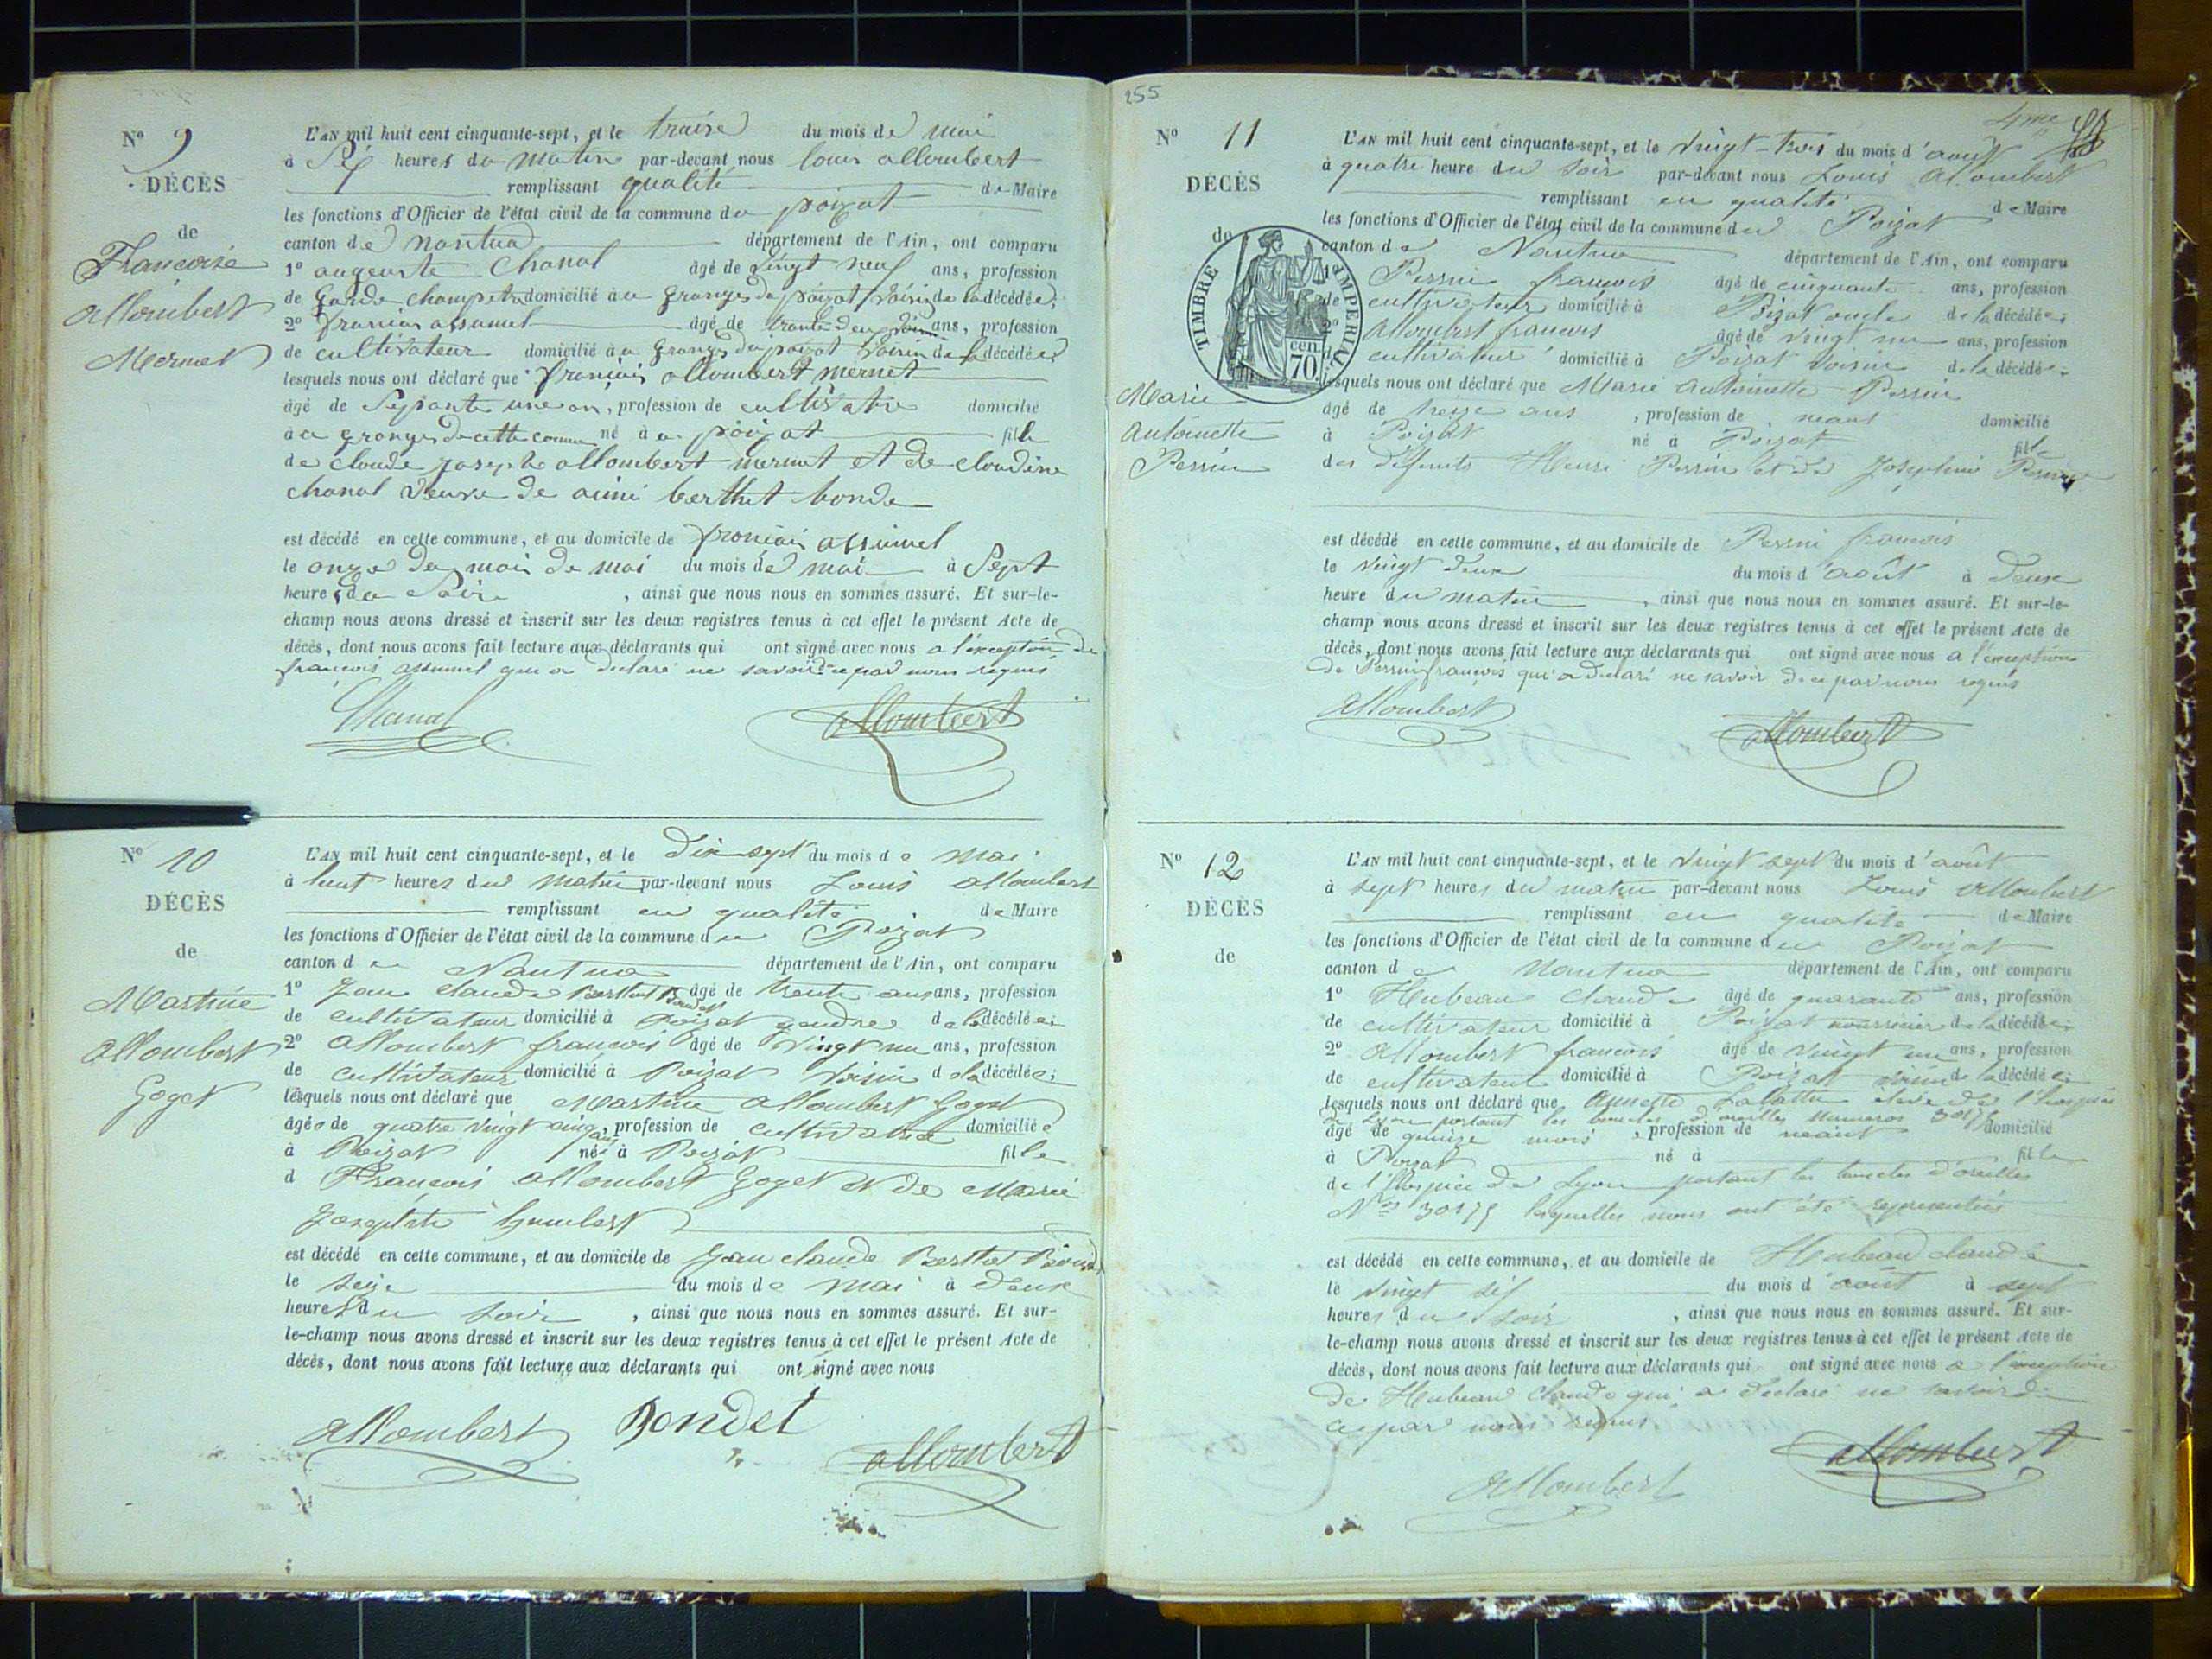 Nº 9
DÉCÈS
de
Francoise
allombert
Mermet
L'AN mil huit cent cinquante-sept, et le traise du mois de mai
à Sés heures du matin par-devant nous louis allombert
remplissant qualité de Maire
les fonctions d'Officier de l'état civil de la commune du poizat
canton de nantua département de l'Ain, ont comparu
1º augeuste Chanal âgé de vingt neuf ans, profession
de garde champetre domicilié à u granges du poizat voisin de la décédée;
2º francois assumel âgé de trante deux ans, profession
de cultivateur domicilié à u granges du poizat voisin de la décédée
lesquels nous ont déclaré que francois allombert mermet
âgé de sepante une an, profession de cultivatre domicilié
à u granges de cette comune né à u poizat fille
de claude joseph allombert mermet et de claudine
chanal veuve de aimé berthet bonde
est décédé en cette commune, et au domicile de francois assumel
le onze du mois de mai du mois de mai à Sept
heures du Soire, ainsi que nous nous en sommes assuré. Et sur-le-
champ nous avons dressé et inscrit sur les deux registres tenus à cet effet le présent Acte de
décès, dont nous avons fait lecture aux déclarants qui ont signé avec nous a l'exception de
francois assumel qui a declaré ne savoir de ce par nous requis
Chanal allombert
Nº 10
DÉCÈS
de
Martine
allombert
Goget
L'AN mil huit cent cinquante-sept, et le Dix sept du mois de mai
à huit heures du matin par-devant nous Louis allombert
remplissant en qualité de Maire
les fonctions d'Officier de l'état civil de la commune du Poizat
canton de Nantua département de l'Ain, ont comparu
1º Jean claude Berthet Bondet âgé de trente ans ans, profession
de cultivateur domicilié à Poizat gendre de la décédée;
2º allombert francois âgé de vingt un ans, profession
de cultivateur domicilié à Poizat voisin de la décédée;
lesquels nous ont déclaré que Martine allombert Goget
âgée de quatre vingt cinq ans, profession de cultivatrice domicilié e
à Poizat née à Poizat fille
d François allombert Goget et de Marie
Josephte humbert
est décédé en cette commune, et au domicile de Jean claude Berthet Bondet
le seize du mois de mai à deux
heures du soir, ainsi que nous nous en sommes assuré. Et sur-
le-champ nous avons dressé et inscrit sur les deux registres tenus à cet effet le présent Acte de
décès, dont nous avons fait lecture aux déclarants qui ont signé avec nous
allombert Bondet allombert
255
4me
Nº 11
DÉCÈS
de
TIMBRE IMPERIAL
70 cen
Marie
Antoinette
Perrin
L'AN mil huit cent cinquante-sept, et le vingt-trois du mois d'aout
à quatre heure du soir par-devant nous Louis Allombert
remplissant en qualité de Maire
les fonctions d'Officier de l'état civil de la commune du Poizat
canton de Nantua département de l'Ain, ont comparu
1º Perrin francois âgé de cinquante ans, profession
de cultivateur domicilié à Poizat oncle de la décédée;
2º Allombert francois âgé de vingt un ans, profession
cultivateur domicilié à Poizat voisin de la décédée;
lesquels nous ont déclaré que Marie Antoinette Perrin
âgé de treize ans, profession de neant domicilié
à Poizat né à Poizat fille
des défunts Henri Perrin et de Josephine Perrin
est décédé en cette commune, et au domicile de Perrin francois
le vingt deux du mois d'août à deux
heure du matin, ainsi que nous nous en sommes assuré. Et sur-le-
champ nous avons dressé et inscrit sur les deux registres tenus à cet effet le présent Acte de
décès, dont nous avons fait lecture aux déclarants qui ont signé avec nous a l'exception
de Perrin francois qui a declaré ne savoir de ce par nous requis
allombert allombert
Nº 12
DÉCÈS
de
L'AN mil huit cent cinquante-sept, et le vingt sept du mois d'août
à sept heures du matin par-devant nous Louis Allombert
remplissant en qualité de Maire
les fonctions d'Officier de l'état civil de la commune du Poizat
canton de Nantua département de l'Ain, ont comparu
1º Hubeau Claude âgé de quarante ans, profession
de cultivateur domicilié à Poizat nourricier de la décédée;
2º Allombert francois âgé de vingt un ans, profession
de cultivateur domicilié à Poizat voisin de la décédée
lesquels nous ont déclaré que Annette eleve de l'hospice
de Lyon portant les boucles d'oreilles numeros 30175
âgé de quinze mois, profession de neant domicilié
à Poizat né à fille
de l'Hospice de Lyon portant les boucles d'oreilles
Nos 30175 lesquelles nous ont été representées
est décédé en cette commune, et au domicile de Hubeau claude
le vingt six du mois d'août à sept
heures du soir, ainsi que nous nous en sommes assuré. Et sur-
le-champ nous avons dressé et inscrit sur les deux registres tenus à cet effet le présent Acte de
décès, dont nous avons fait lecture aux déclarants qui ont signé avec nous a l'exception
de Hubeau Claude qui a declaré ne savoir de
ce par nous requis
allombert allombert